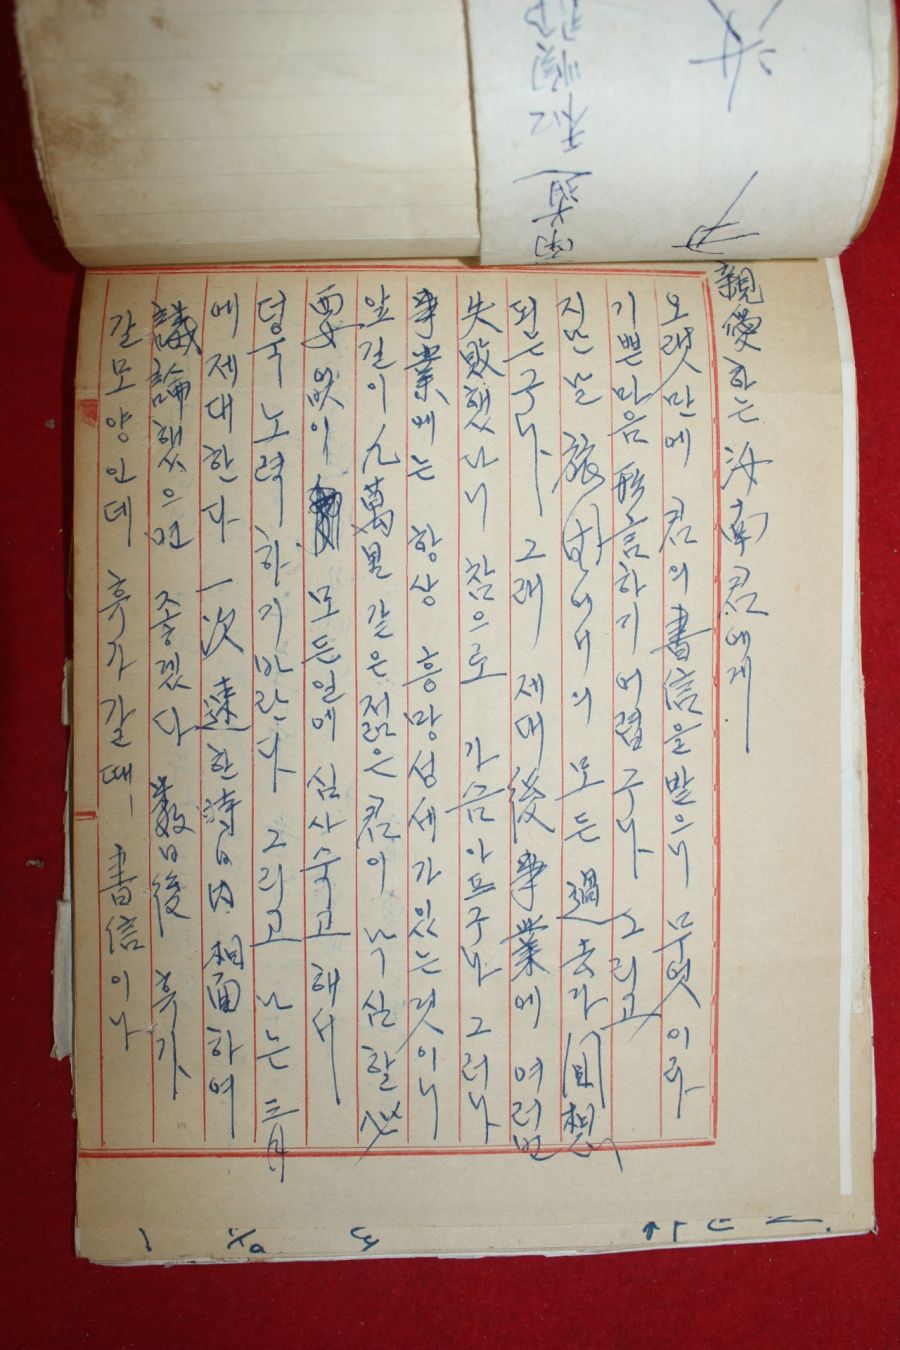 親愛하는 汝南君에게
오랫만에 君의 書信을 받으니 무엇이라
기쁜 마음 形言하기 어렵구나 그리고
지난날 旅 에서의 모든 過去가 回想
되는구나 그래 제대後 事業에 여러번
失敗했다니 참으로 가슴아프구나 그러나
事業에는 항상 흥망성세가 있는 것이니
앞길이 九萬里 같은 젊은 君이 낙심할 必
要없이 모든일에 심사숙고해서
더욱 노력하기 바란다 그리고 나는 三月
에 제대한다 一次 速한 時日內 相面하여
議論했으면 좋겠다 數日後 휴가
갈 모양인데 휴가갈때 書信이나